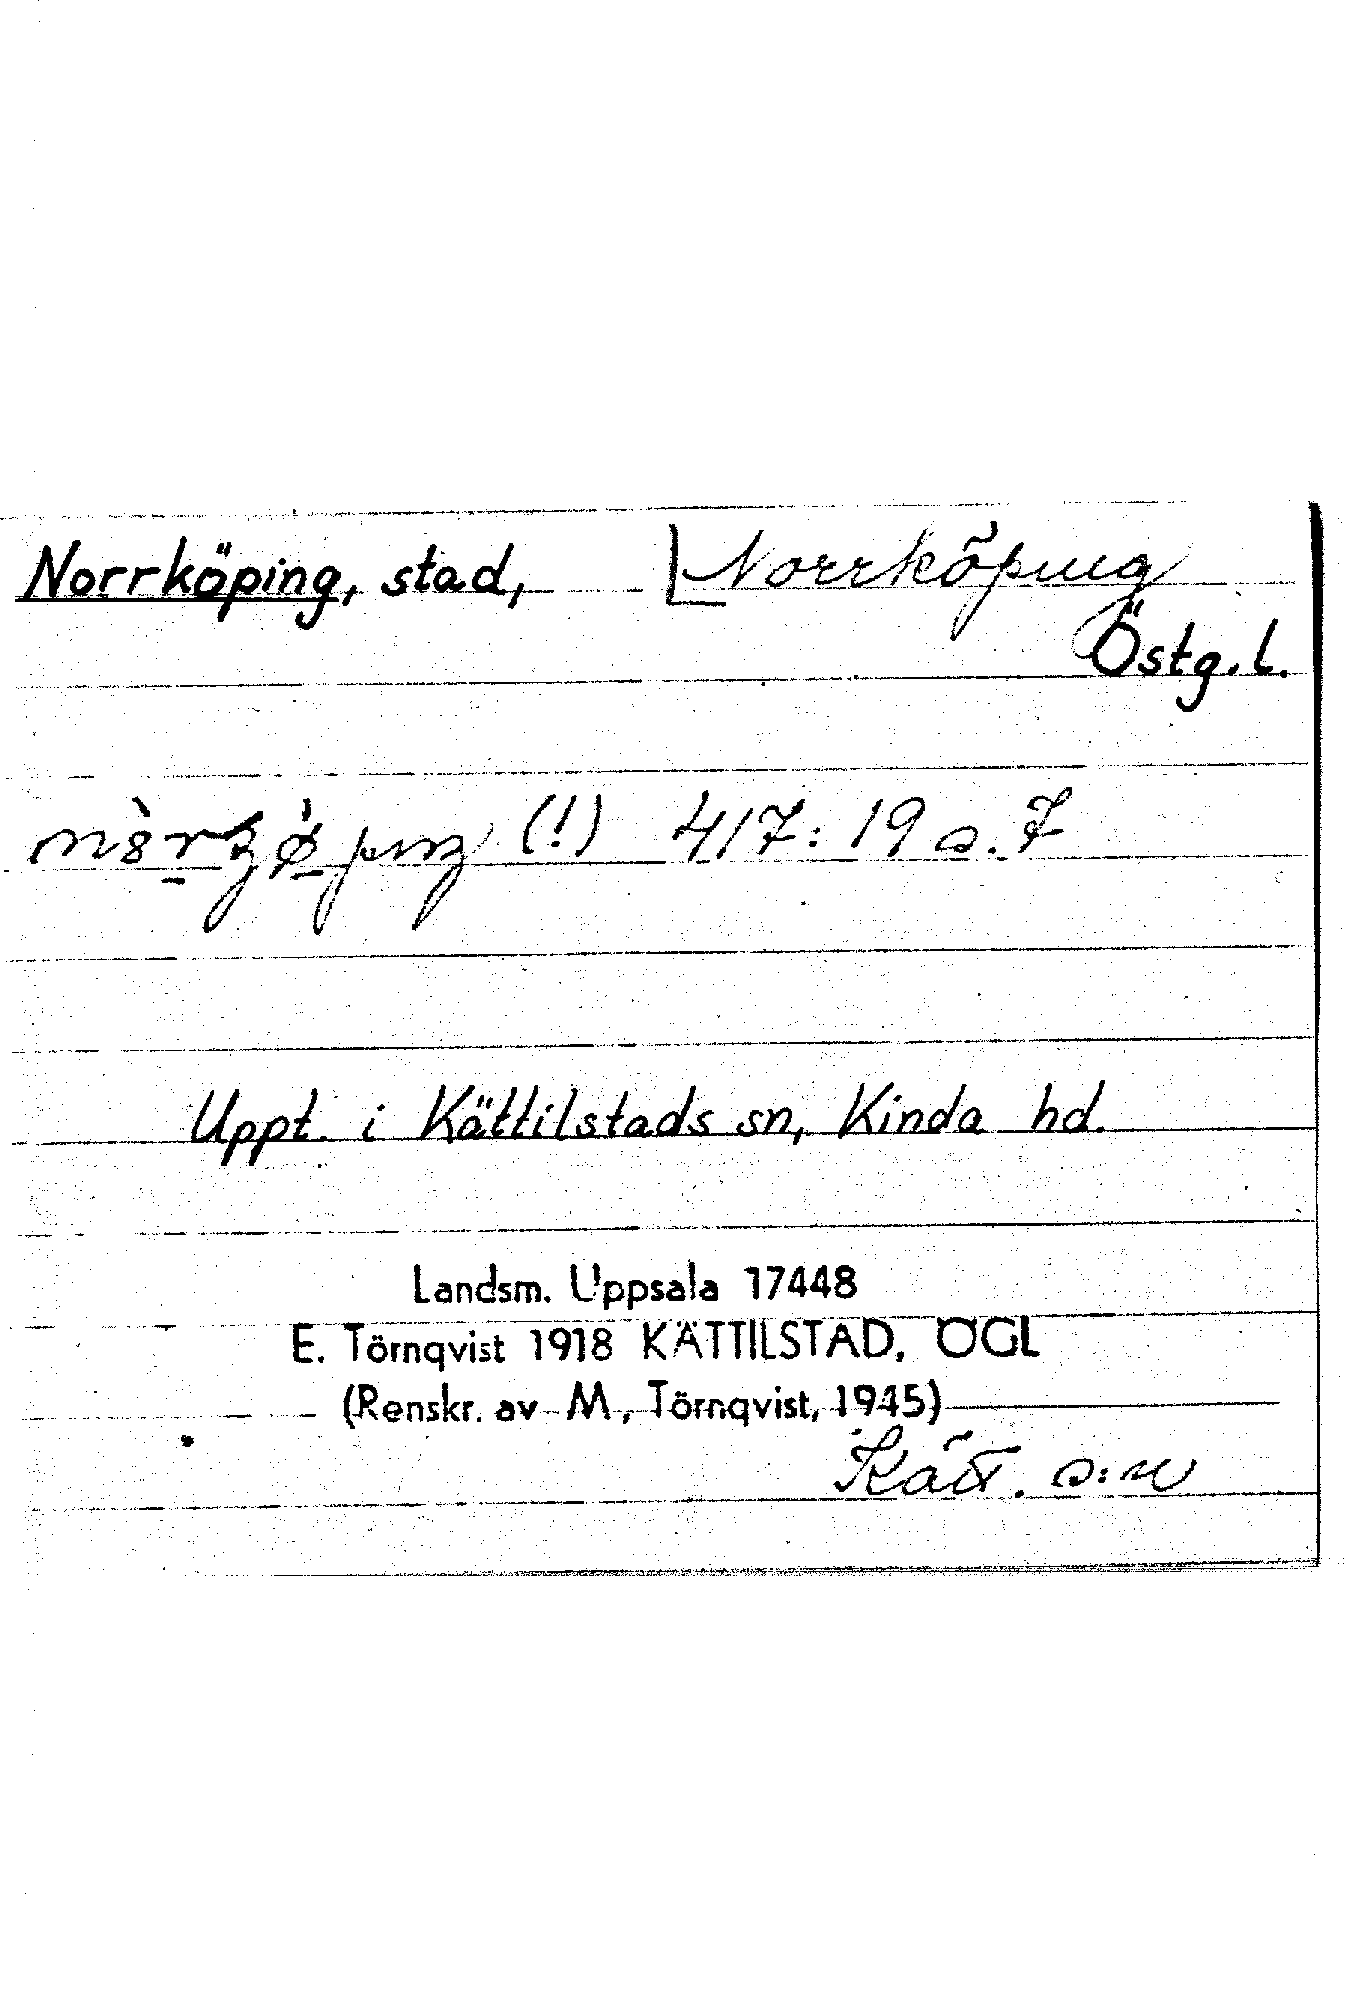 Norrköping, stad, Norrköping
Östg.l.
(!) 417: 19 s. 7
Uppt. i Kättilstads sn, Kinda hd.
Landsm. Uppsala 17448
E. Törnqvist 1918 KÄTTILSTAD, ÖGL
(Renskr. av M. Törnqvist, 1945)
Kätt. s:n